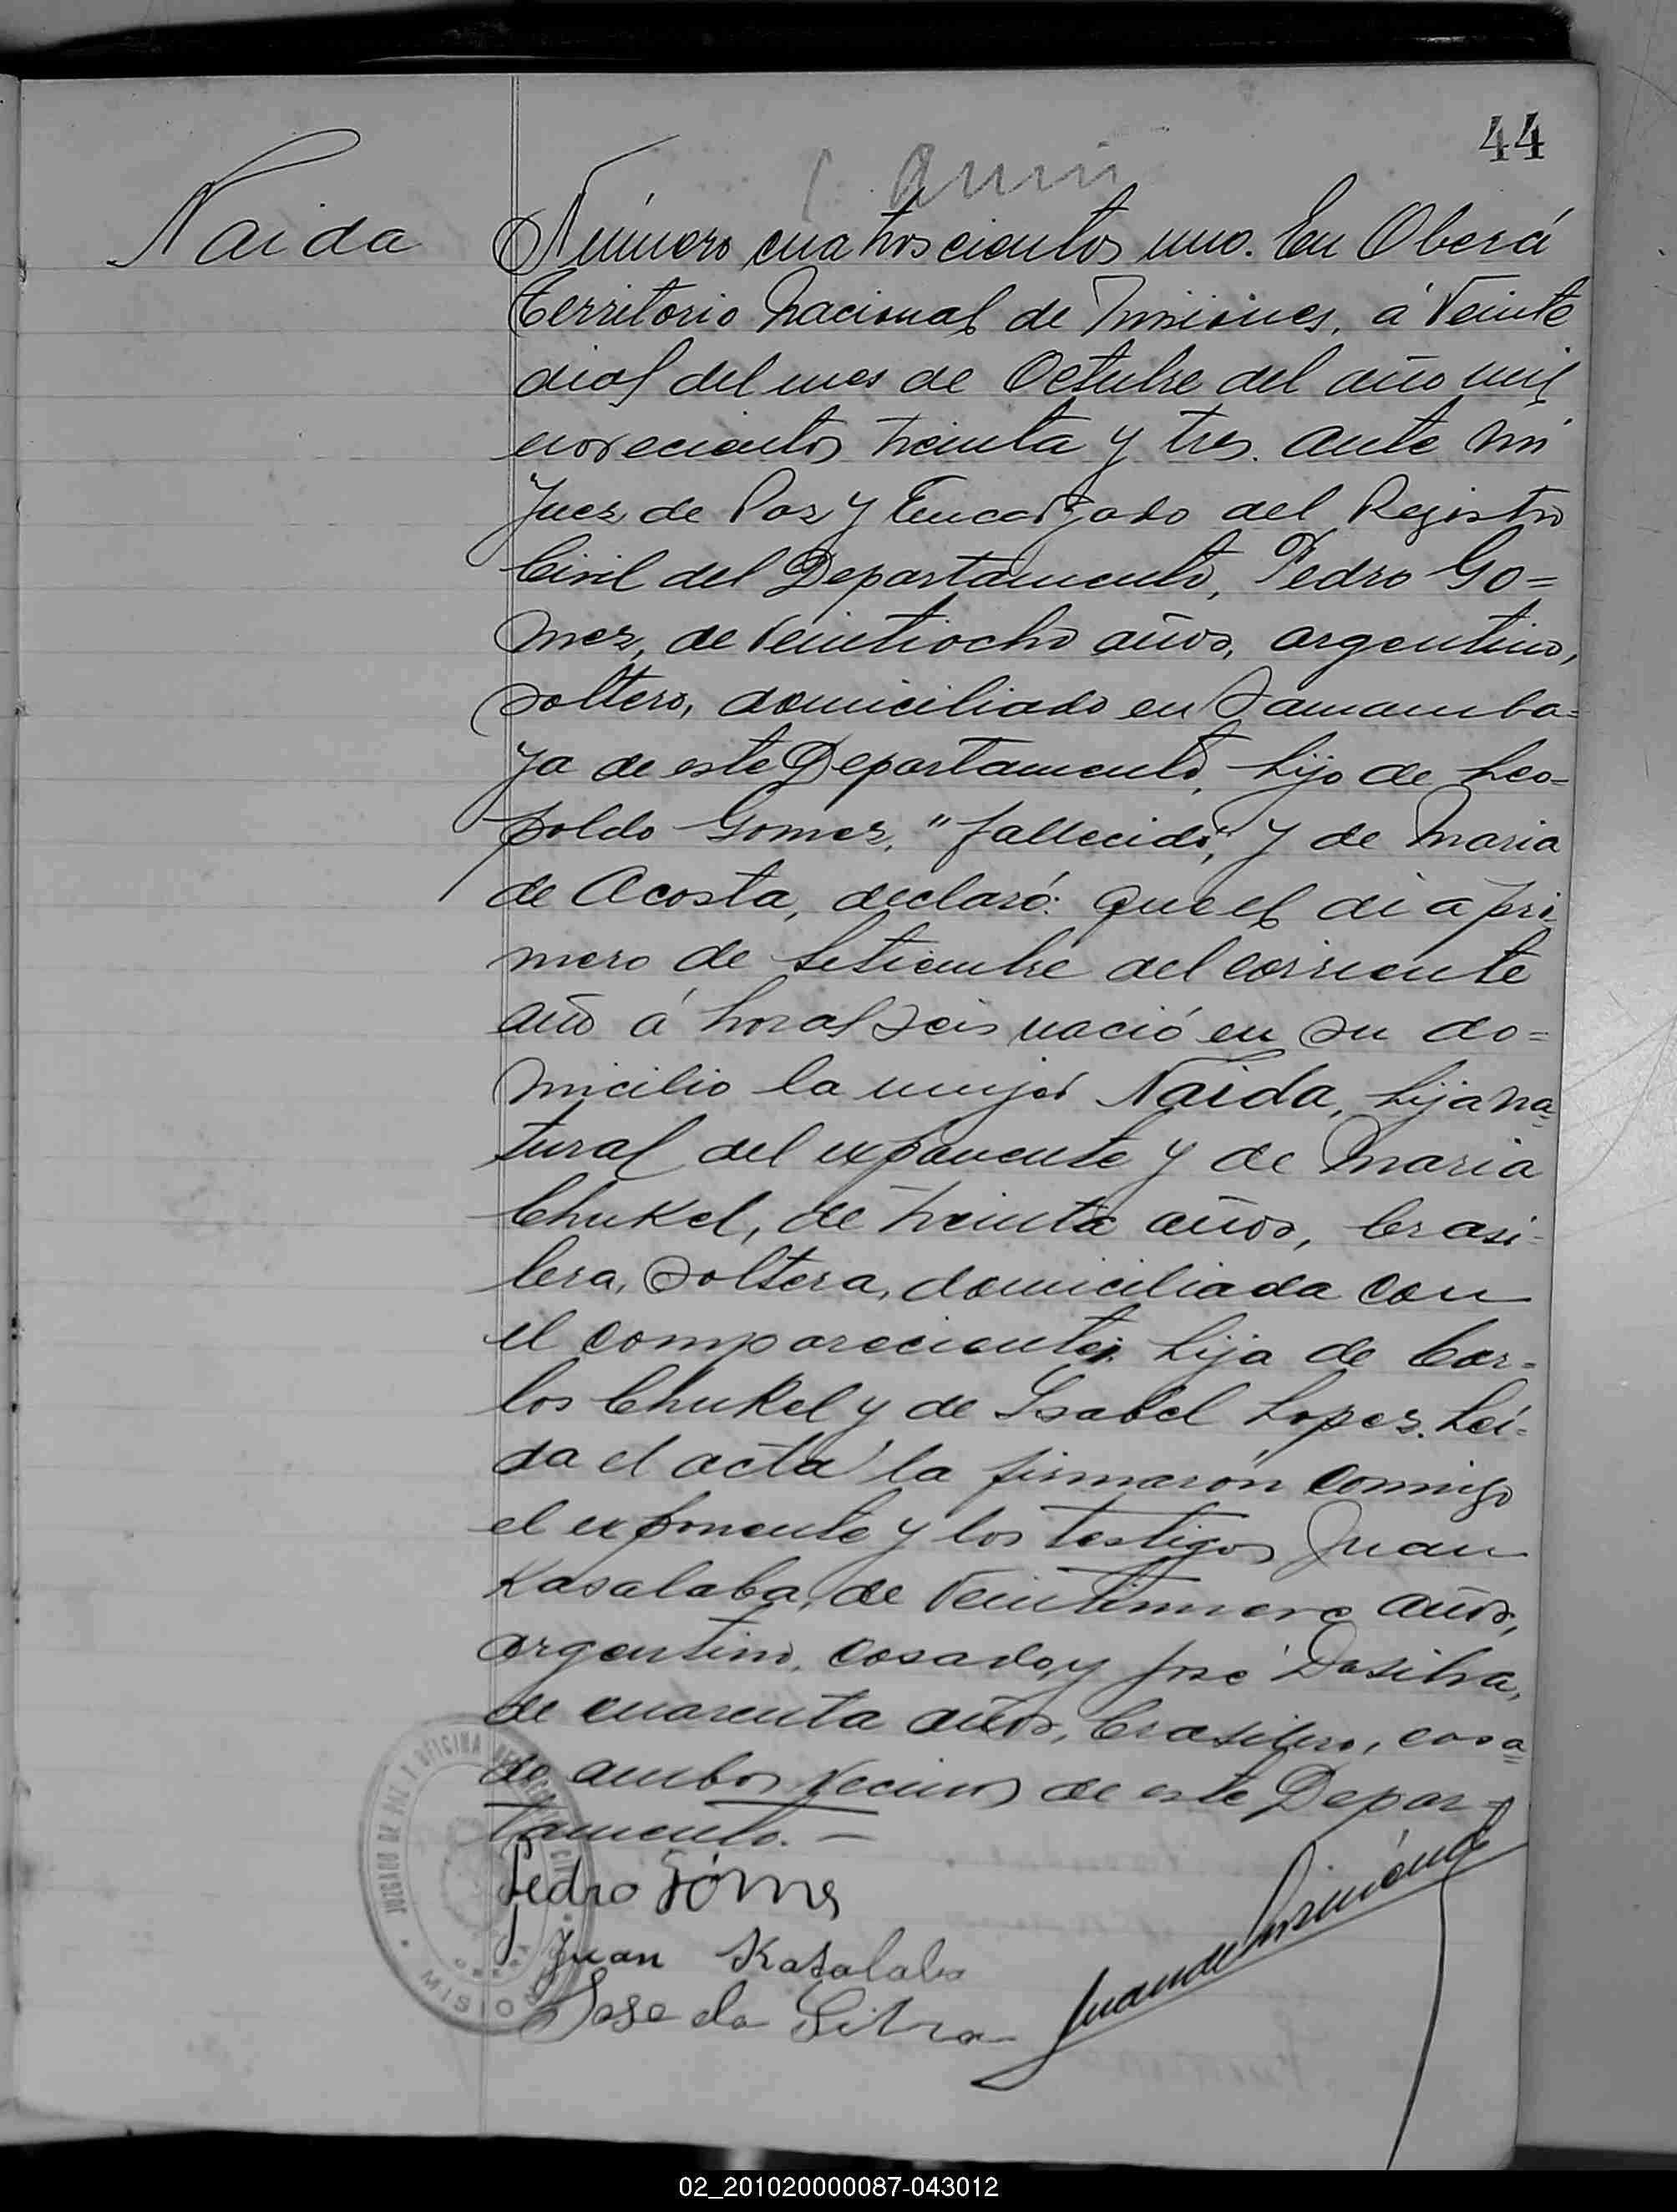 44
Naida
Número cuatroscientos uno. En Oberá
Territorio Nacional de Misiones, á veinte
dias del mes de Octubre del año mil
novecientos treinta y tres. ante mi
Juez de Paz y Encargado del Registro
Civil del Departamento, Pedro Go=
mez, de veintiocho años, argentino,
soltero, domiciliado en Samamba=
ya de este Departamento, hijo de Leo=
poldo Gomez, "fallecido", y de Maria
de Acosta, declaró: que el dia pri-
mero de Setiembre del corriente
año á horas seis nació en su do=
micilio la mujer Naida, hija na=
tural del exponente y de Maria
Chukel, de treinta años, brasi-
lera, soltera, domiciliada con
el compareciente; hija de Car=
los Chukel y de Isabel Lopez. Leí=
da el acta la firmarón conmigo
el exponente y los testigos Juan
Kasalaba, de veintinueve años,
argentino, casado, y José Dasilva,
de cuarenta años, brasilero, casa=
do ambos vecinos de este Depar=
tamento.—
Pedro Gómes
Juan Kasalaba
Jose da Silva
JUZGADO DE PAZ Y OFICINA DE REGISTRO CIVIL
OBERA
MISIONES
02_201020000087-043012